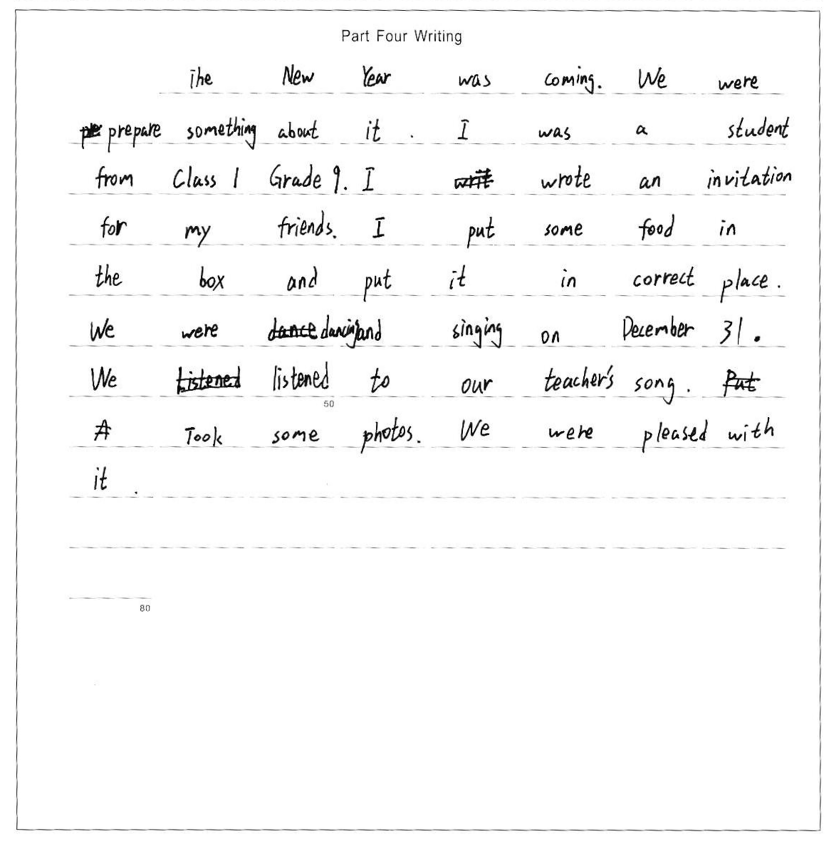 Part Four Writing
The New Year was coming. We were
prepare something about it . I was a student
from Class 1 Grade 9. I wrote an invitation
for my friends. I put some food in
the box and put it in correct place.
We were dancing and singing on December 31.
We listened to our teacher's song.
50
Took some photos. We were pleased with
it .
80